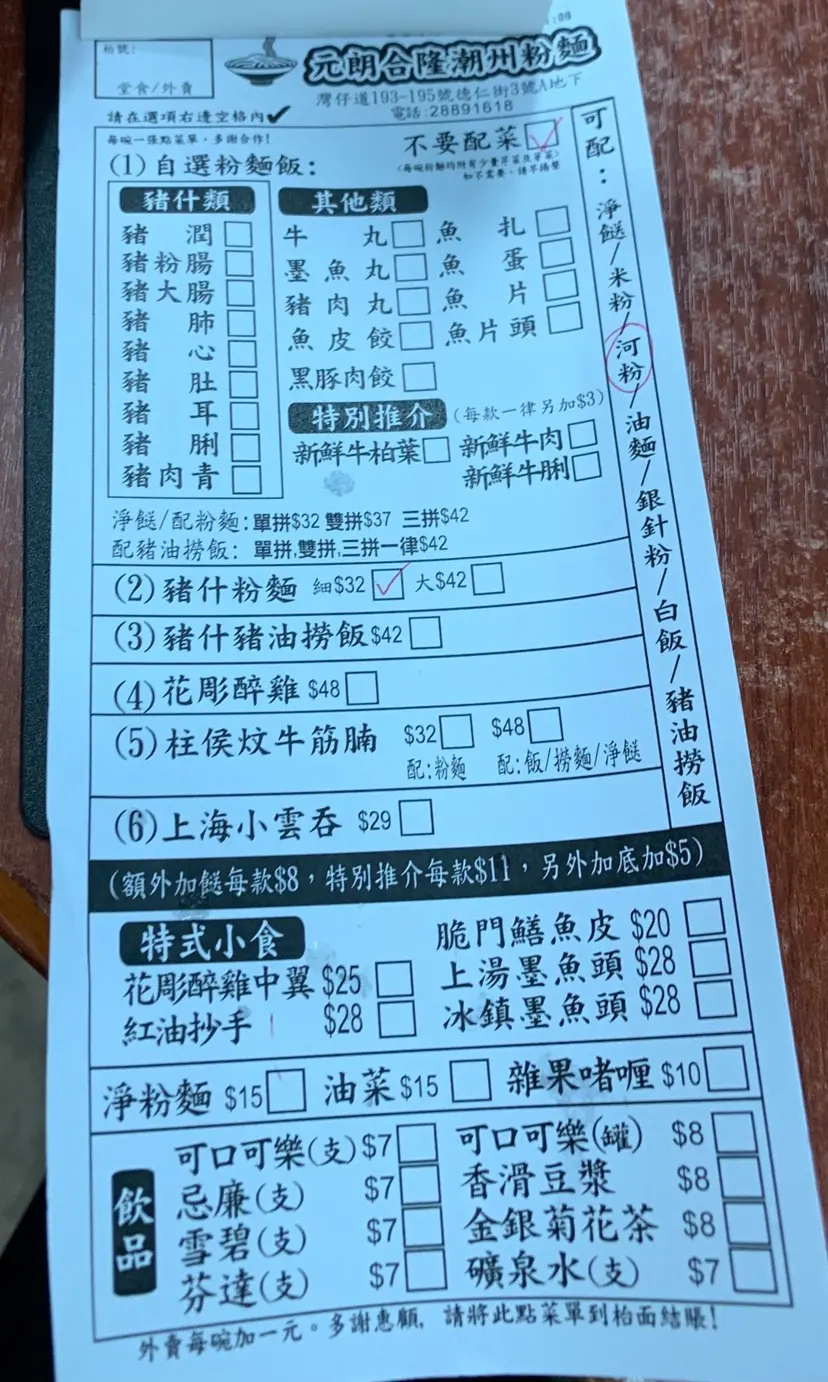 枱號:
堂食/外賣
元朗合隆潮州粉麵
灣仔道193-195號德仁街3號A地下
電話:28891618
請在選項右邊空格內✔
每碗一張點菜單,多謝合作!
不要配菜
(每碗粉麵均附有少量芹菜及芽菜)
如不需要,請早揚聲
(1)自選粉麵飯:
豬什類
豬潤
豬粉腸
豬大腸
豬肺
豬心
豬肚
豬耳
豬脷
豬肉青
其他類
牛丸 魚扎
墨魚丸 魚蛋
豬肉丸 魚片
魚皮餃 魚片頭
黑豚肉餃
特別推介(每款一律另加$3)
新鮮牛柏葉 新鮮牛肉
新鮮牛脷
淨餸/配粉麵:單拼$32 雙拼$37 三拼$42
配豬油撈飯: 單拼,雙拼,三拼一律$42
可配:淨餸/米粉/河粉/油麵/銀針粉/白飯/豬油撈飯
(2)豬什粉麵 細$32 大$42
(3)豬什豬油撈飯$42
(4)花彫醉雞 $48
(5)柱侯炆牛筋腩 $32 $48
配:粉麵 配:飯/撈麵/淨餸
(6)上海小雲吞 $29
(額外加餸每款$8,特別推介每款$11,另外加底加$5)
特式小食
脆門鱔魚皮 $20
花彫醉雞中翼 $25 上湯墨魚頭 $28
紅油抄手 $28 冰鎮墨魚頭 $28
淨粉麵 $15 油菜 $15 雜果啫喱 $10
飲品
可口可樂(支) $7 可口可樂(罐) $8
忌廉(支) $7 香滑豆漿 $8
雪碧(支) $7 金銀菊花茶 $8
芬達(支) $7 礦泉水(支) $7
外賣每碗加一元。多謝惠顧,請將此點菜單到枱面結賬!